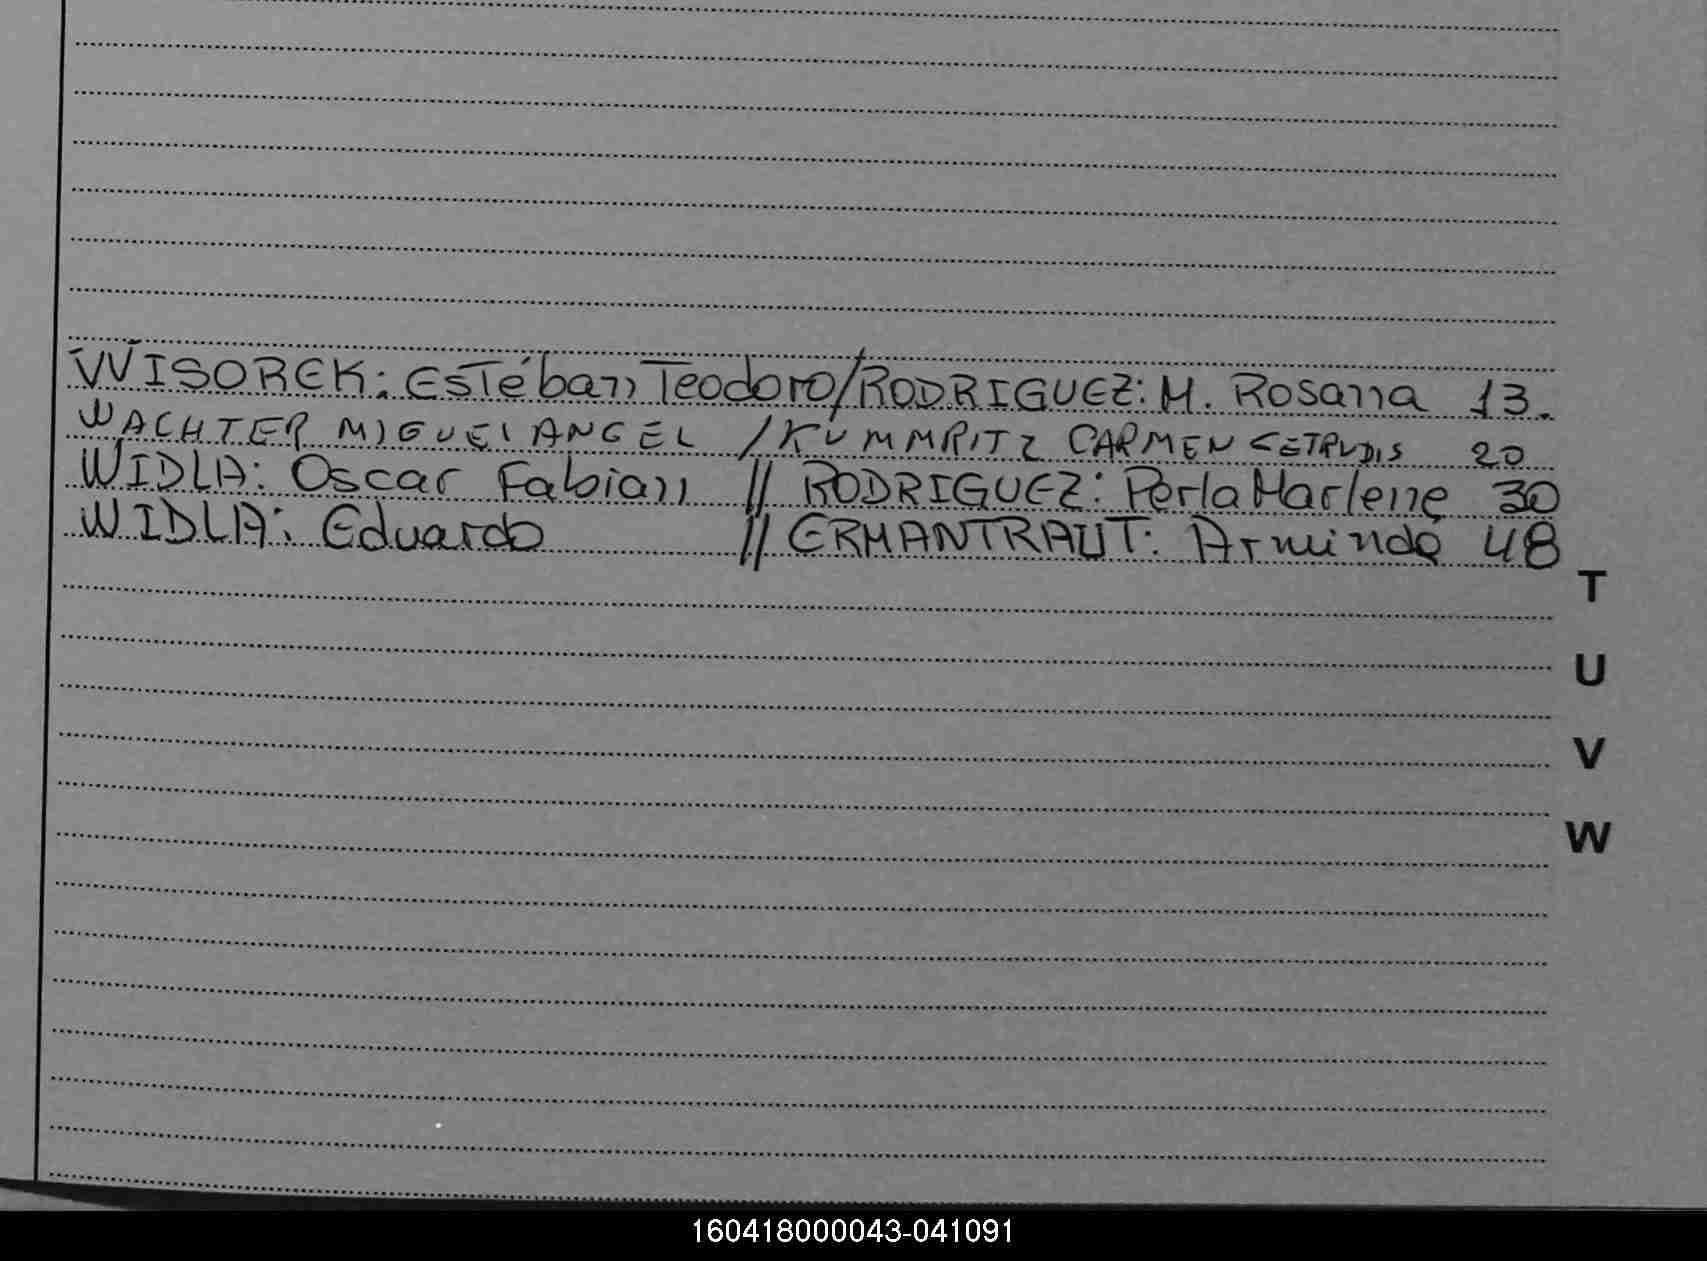 WISOREK: Estéban Teodoro/RODRIGUEZ: M. Rosana 13.
WACHTER MIGUEL ANGEL / KUMMRITZ CARMEN GETRUDIS 20
WIDLA: Oscar Fabian // RODRIGUEZ: Perla Marlene 30
WIDLA: Eduardo // ERMANTRAUT: Arminda 48
T
U
V
W
160418000043-041091